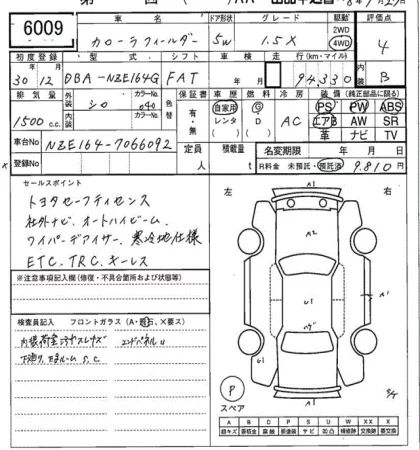 第 回
6009
車名 ドア形状 グレード 駆動 評価点
カローラフィールダー 5W 1.5X 2WD 4WD 4
初度登録 型式 シフト 車検 走行(km・マイル) 内装
30年12月 DBA-NZE164G FAT 年 月 94,330 B
排気量 外装 色 カラーNo. 色替 保証書 車歴 燃料 冷房 装備(純正部品に限る)
1500c.c. シロ 040 有・無 自家用 レンタ G D AC PS PW ABS
内装 カラーNo. エアB AW SR
革 ナビ TV
車台No NZE164-7066092 定員 人 積載量 t 名変期限 年 月 日
登録No R料金 未預託・預託済 9,810円
セールスポイント
トヨタセーフティセンス
社外ナビ、オートハイビーム、
ワイパーデアイサー、寒冷地仕様
ETC、TRC、キーレス
※注意事項記入欄(修復・不具合箇所および状態等)
検査員記入 フロントガラス(A・飛石、X要ス)
エンドパネルU
左 右
A1
A2
U1
A1
U1
A1
P
スペア
8/4
A B C P S U W X XX X